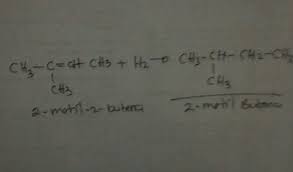 CH3-C=CH CH3 + H2 → CH3-CH-CH2-CH3
CH3 CH3
2-metil-2-butena 2-metil butana